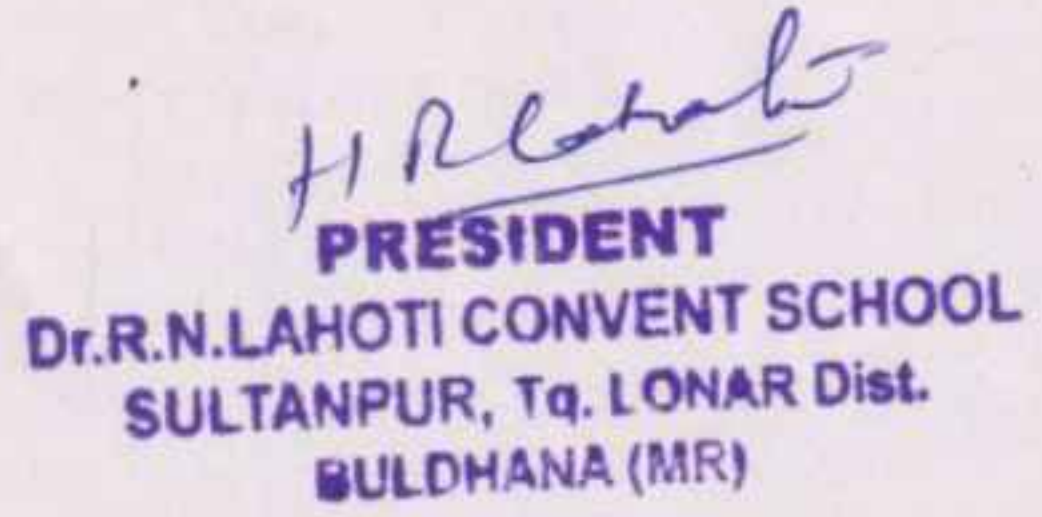 H R Lahoti
PRESIDENT
Dr.R.N.LAHOTI CONVENT SCHOOL
SULTANPUR, Tq. LONAR Dist.
BULDHANA (MR)